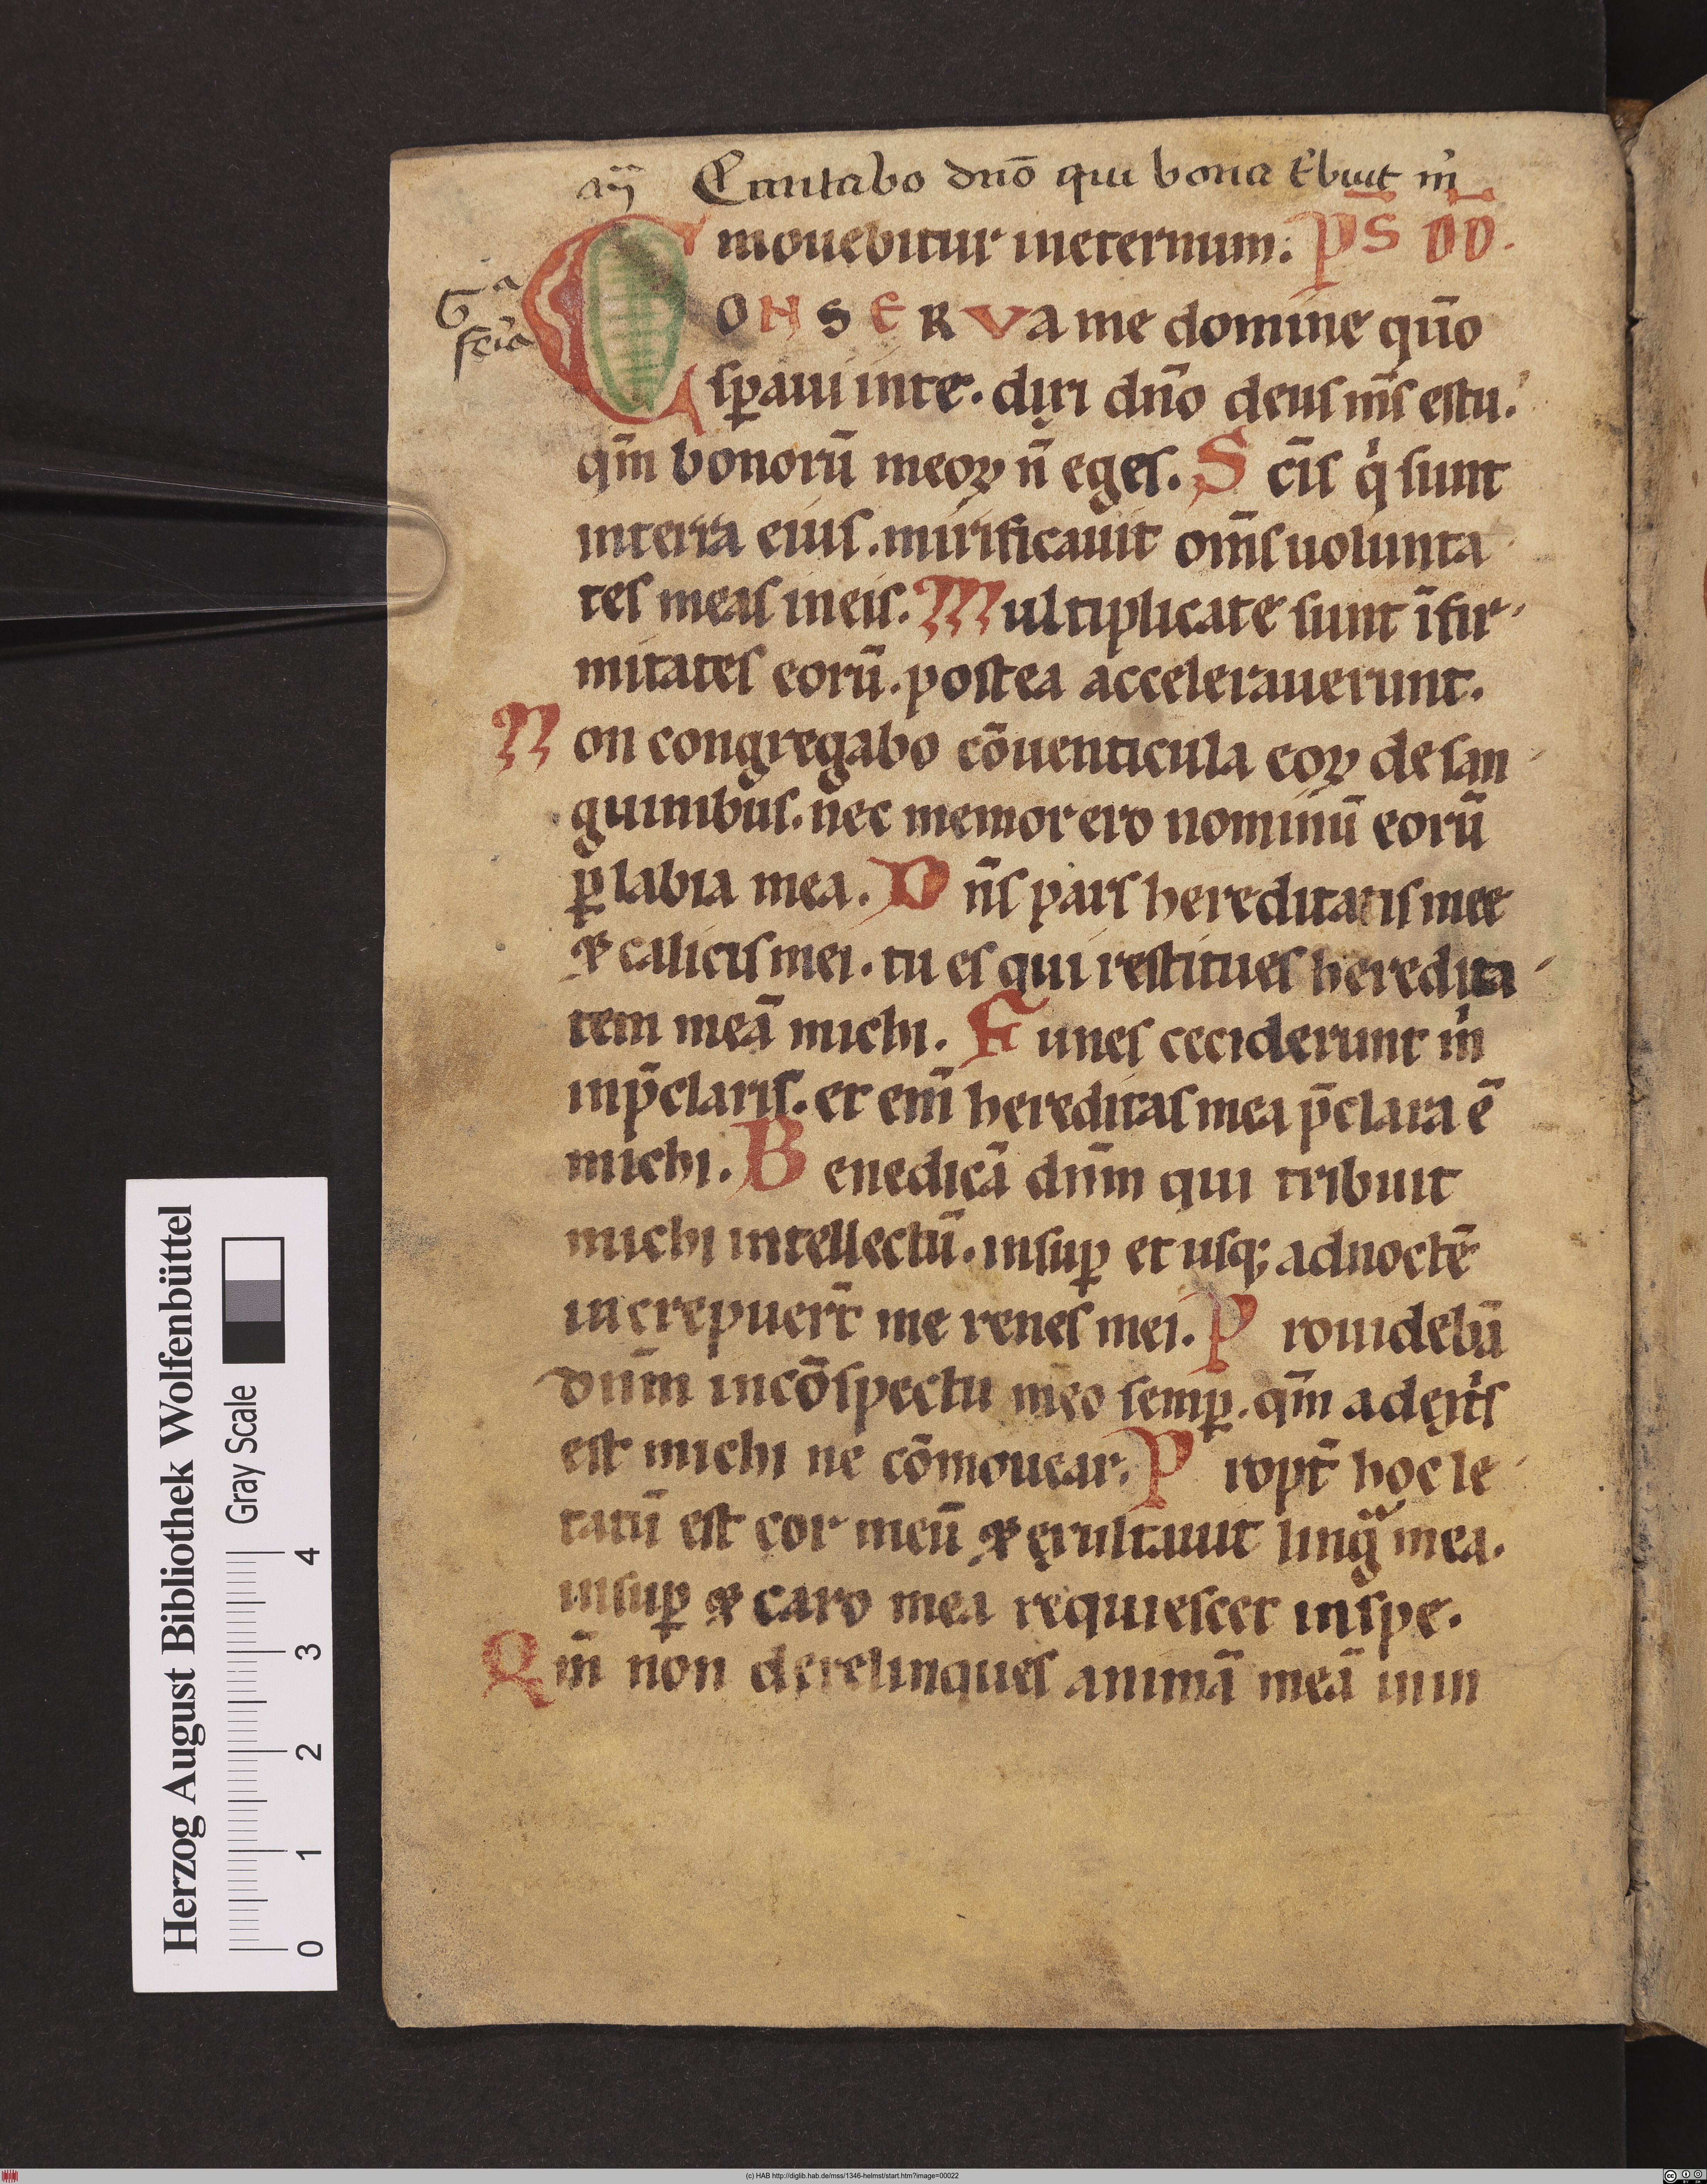 Cantabo dn̄o qui bona t̾buit m̍
mouebitur ineternum. P̄S D̄D̄.
G a
fēia
CONSERVA me domine qūo
sꝑaui inte. dixi dn̄o deus m̄s estu.
qm̄ bonorū meoꝝ n̄ eges. Sc̄is q̍ sunt
interra eius. mirificauit om̄s uolunta
tes meas ineis. Multiplicate sunt īfir
mitates eorū. postea accelerauerunt.
Non congregabo cōuenticula eoꝝ desan
guinibus. nec memor ero nominū eorū
ꝑ labia mea. Dn̄s pars hereditatis mee
⁊ calicis mei. tu es qui restitues heredita
tem meā michi. Funes ceciderunt m̍
inp̄claris. et eni̅ hereditas mea p̄clara ē
michi. Benedicā dnm̄ qui tribuit
michi intellectū. insuꝑ et usq; adnoctē
increpuer̄t me renes mei. Prouidebā
dnm̄ incōspectu meo semꝑ. qm̄ adext̍s
est michi ne cōmouear. Propt̄ hoc le
tatū est cor meū ⁊ exultauit lingᵃ mea.
insuꝑ ⁊ caro mea requiescet inspe.
Qm̄ non derelinques animā meā inin
Herzog August Bibliothek Wolfenbüttel
Gray Scale
0 1 2 3 4
(c) HAB http://diglib.hab.de/mss/1346-helmst/start.htm?image=00022